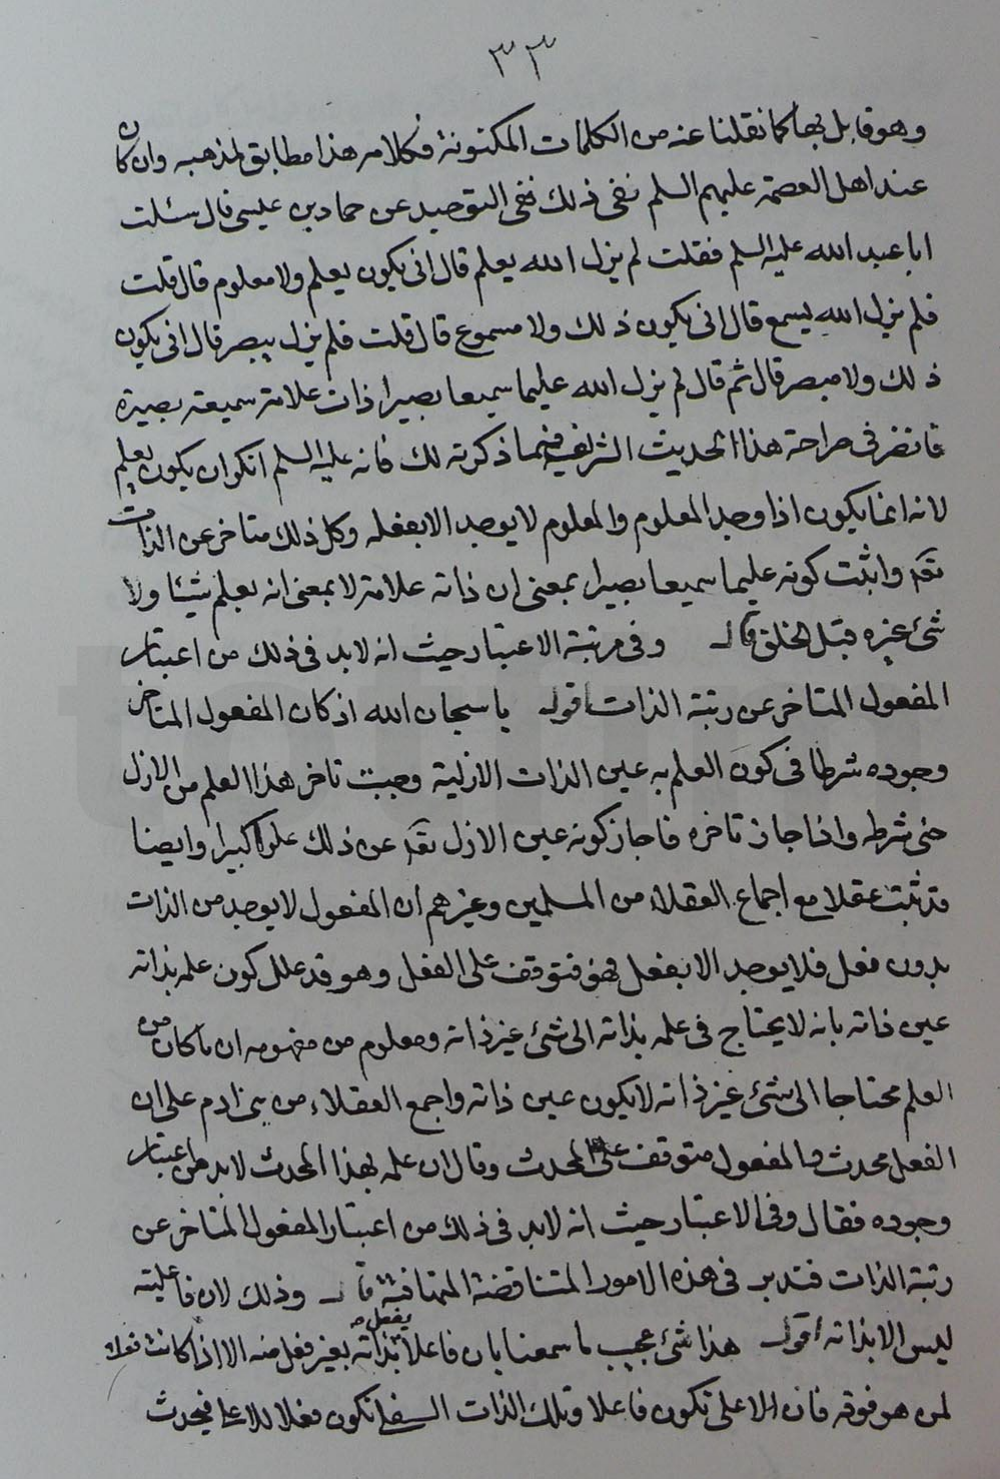 ٣٣
وهو قابل بها كما نقلنا عنه من الكلمات المكنونة فكلامه هذا مطابق لمذهبه وان كان
عند اهل العصمة عليهم السلم نفى ذلك نفى التوحيد عن حماد بن عيسى قال سئلت
ابا عبد الله عليه السلم فقلت لم يزل الله يعلم قال انى يكون يعلم ولا معلوم قال قلت
فلم يزل الله يسمع قال انى يكون ذلك ولا مسموع قال قلت فلم يزل يبصر قال انى يكون
ذلك ولا مبصر قال ثم قال لم يزل الله عليما سميعا بصيرا ذات علامة سميعة بصيرة
فانظر فى صراحة هذا الحديث الشريف فيما ذكرته لك فانه عليه السلم انكر ان يكون يعلم
لانه انما يكون اذا وجد المعلوم والمعلوم لا يوجد الا بفعله وكل ذلك متاخر عن الذات
تعه واثبت كونه عليما سميعا بصيرا بمعنى ان ذاته علامة لا بمعنى انه يعلم شيئا ولا
شئ غيره قبل الخلق قال وفى مرتبة الاعتبار حيث انه لا بد فى ذلك من اعتبار
المفعول المتاخر عن رتبة الذات اقول يا سبحان الله اذ كان المفعول المتاخر
وجوده شرطا فى كون العلم به عين الذات الازلية وجب تاخر هذا العلم من الازل
حتى شرطه واذا جاز تاخره فاجاز كونه عين الازل تعه عن ذلك علوا كبيرا وايضا
قد ثبت عقلا مع اجماع العقلاء من المسلمين وغيرهم ان المفعول لا يوجد من الذات
بدون فعل فلا يوجد الا بفعل فهو فتوقف على الفعل وهو قد علل كون علمه بذاته
عين ذاته بانه لا يحتاج فى علمه بذاته الى شئ غير ذاته ومعلوم من مفهومه ان ما كان من
العلم محتاجا الى شئ غير ذاته لا يكون عين ذاته واجمع العقلاء من بنى ادم على ان
الفعل محدث والمفعول متوقف على المحدث وقال ان علمه بهذا المحدث لا بد من اعتبار
وجوده فقال وفى الاعتبار حيث انه لابد فى ذلك من اعتبار المفعول المتاخر عن
رتبة الذات فتدبر فى هذه الامور المتناقضة المتهافتة قال وذلك لان فاعليته
ليس الا بذاته اقول هذا شئ عجيب ما سمعنا بان فاعلا يفعل بذاته بغير فعل منه الا اذا كانت فعلا
لمن هو فوقه فان الاعلى تكون فاعلا وتلك الذات السفلى تكون فعلا للاعلى فيحدث